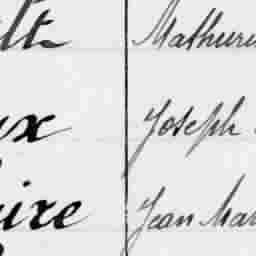 lt Mathuri
ux Joseph
aire Jean Mar